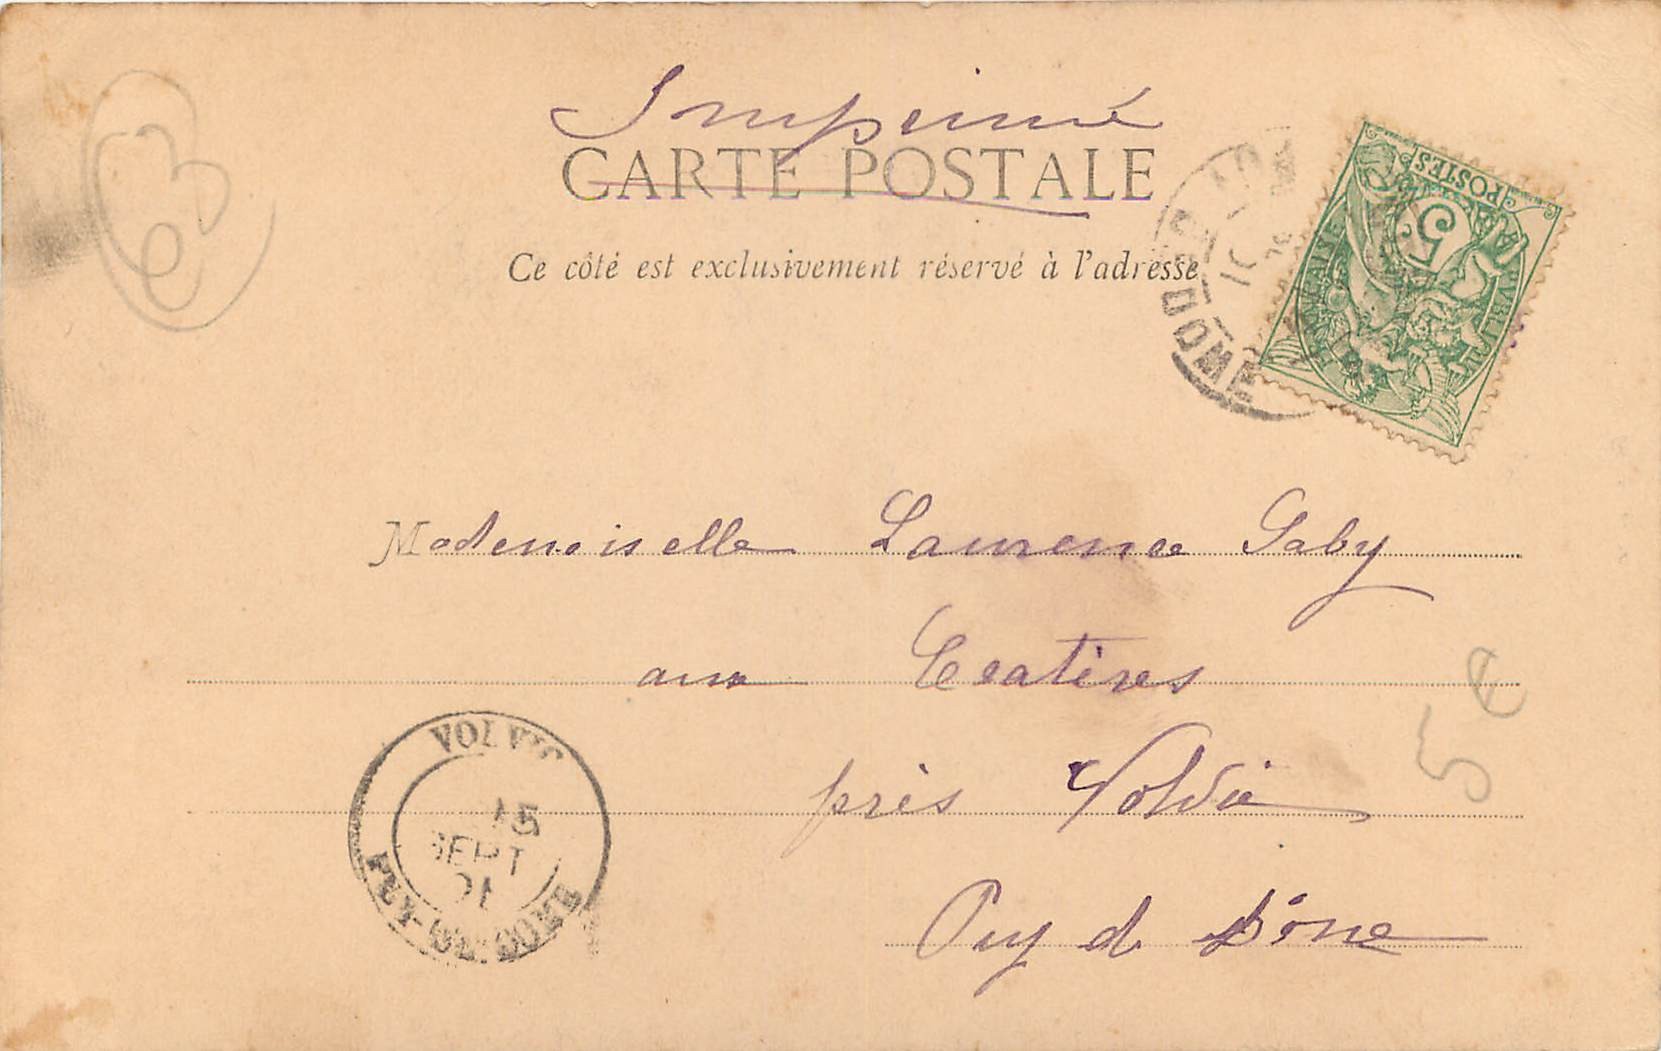 Imprimé
CARTE POSTALE
Ce côté est exclusivement réservé à l'adresse
5
POSTES
DOME
Mademoiselle Laurence Gaby
aux
près Volvic
Puy d Dôme
VOLVIC
15
SEPT
01
PUY-DE-DOME
63
5€